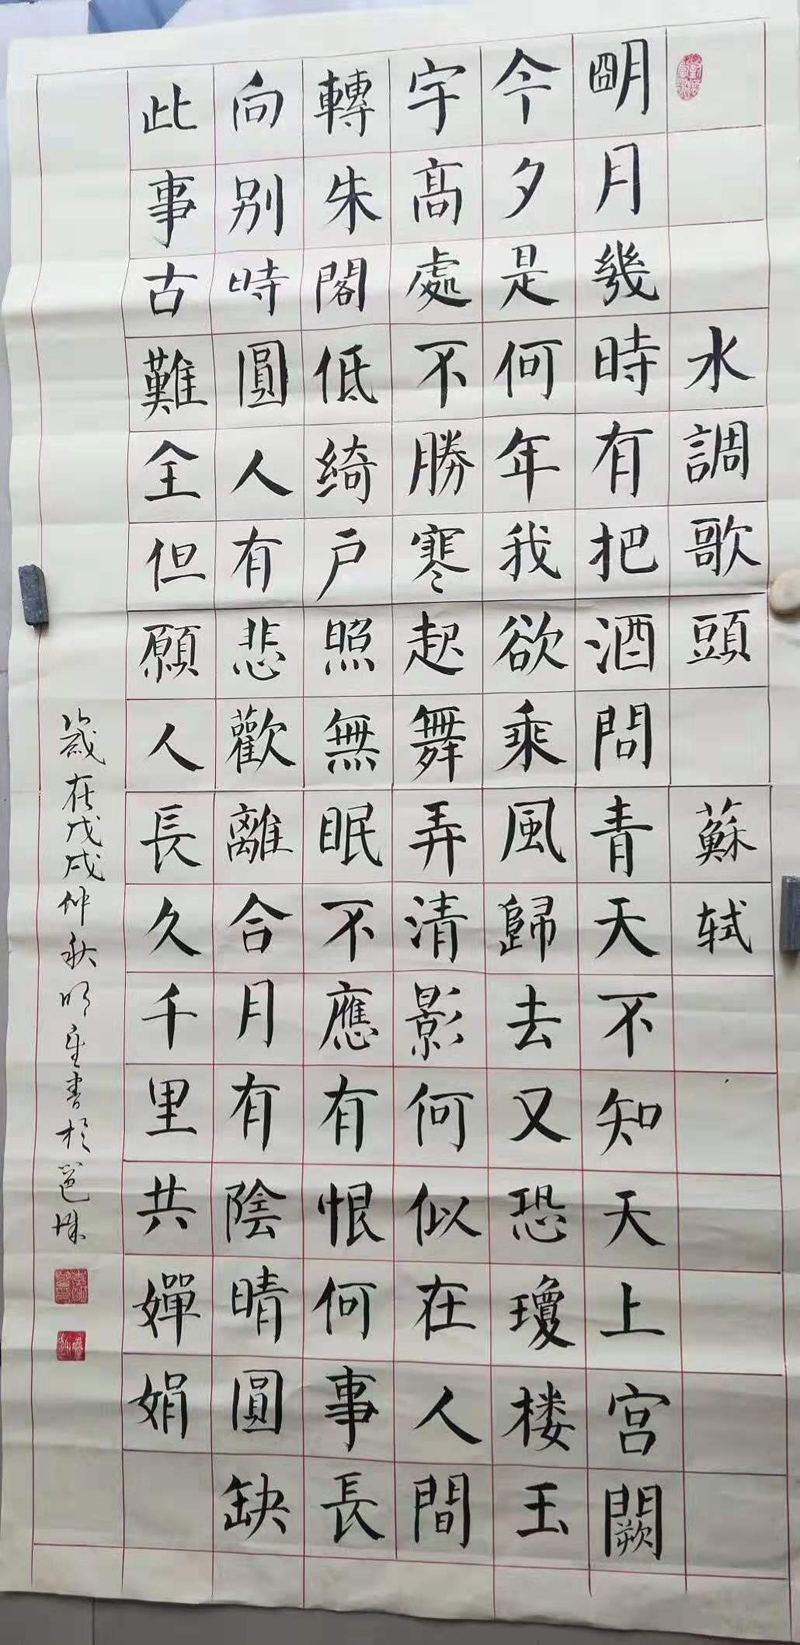 水調歌頭 蘇轼
朙月幾時有把酒問青天不知天上宫闕
今夕是何年我欲乘風歸去又恐瓊楼玉
宇髙處不勝寒起舞弄清影何似在人間
轉朱閣低绮户照無眠不應有恨何事長
向别時圓人有悲歡離合月有陰晴圓缺
此事古難全但願人長久千里共嬋娟
歲在戊戌仲秋明書於邕城